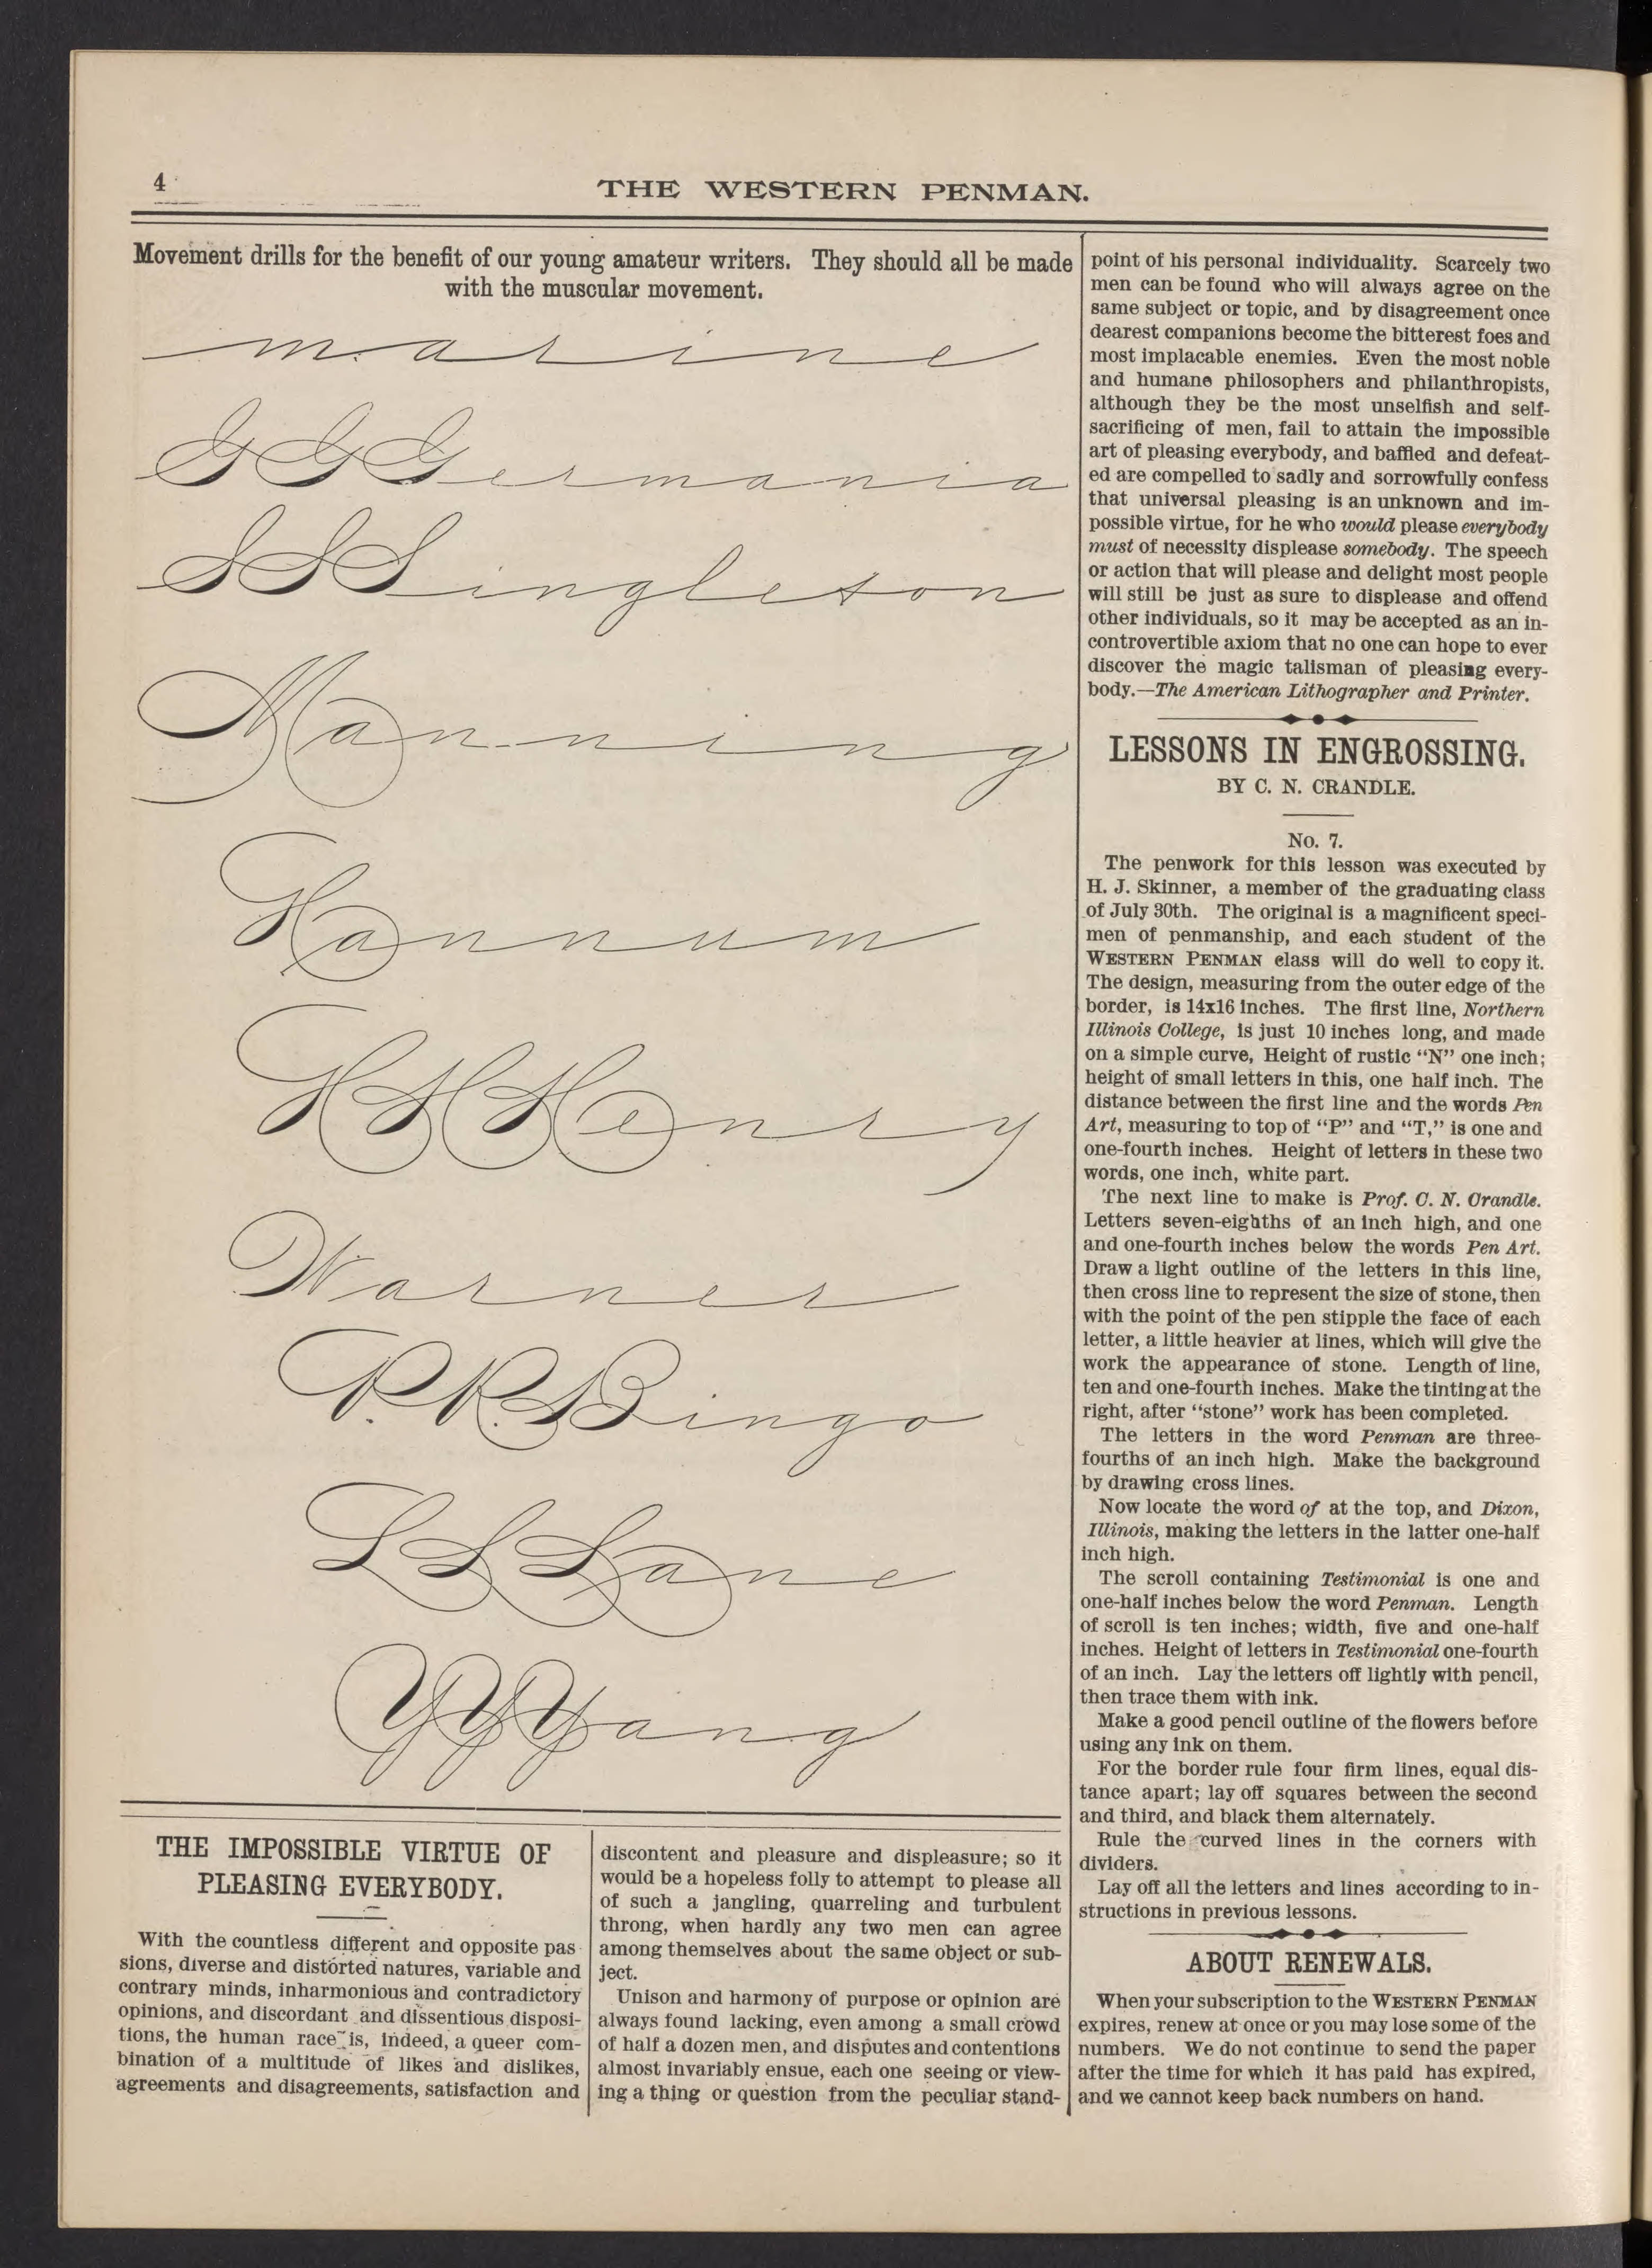 4
THE WESTERN PENMAN.
Movement drills for the benefit of our young amateur writers. They should all be made
with the muscular movement.
marine
G G Germania
S S Singleton
Manning
Hannum
H H Henry
Warner
P. R. Bingo
L L Lane
Y Y Yang
THE IMPOSSIBLE VIRTUE OF
PLEASING EVERYBODY.
With the countless different and opposite pas
sions, diverse and distorted natures, variable and
contrary minds, inharmonious and contradictory
opinions, and discordant and dissentious disposi-
tions, the human race is, indeed, a queer com-
bination of a multitude of likes and dislikes,
agreements and disagreements, satisfaction and
discontent and pleasure and displeasure; so it
would be a hopeless folly to attempt to please all
of such a jangling, quarreling and turbulent
throng, when hardly any two men can agree
among themselves about the same object or sub-
ject.
Unison and harmony of purpose or opinion are
always found lacking, even among a small crowd
of half a dozen men, and disputes and contentions
almost invariably ensue, each one seeing or view-
ing a thing or question from the peculiar stand-
point of his personal individuality. Scarcely two
men can be found who will always agree on the
same subject or topic, and by disagreement once
dearest companions become the bitterest foes and
most implacable enemies. Even the most noble
and humane philosophers and philanthropists,
although they be the most unselfish and self-
sacrificing of men, fail to attain the impossible
art of pleasing everybody, and baffled and defeat-
ed are compelled to sadly and sorrowfully confess
that universal pleasing is an unknown and im-
possible virtue, for he who would please everybody
must of necessity displease somebody. The speech
or action that will please and delight most people
will still be just as sure to displease and offend
other individuals, so it may be accepted as an in-
controvertible axiom that no one can hope to ever
discover the magic talisman of pleasing every-
body.—The American Lithographer and Printer.
LESSONS IN ENGROSSING.
BY C. N. CRANDLE.
No. 7.
The penwork for this lesson was executed by
H. J. Skinner, a member of the graduating class
of July 30th. The original is a magnificent speci-
men of penmanship, and each student of the
WESTERN PENMAN class will do well to copy it.
The design, measuring from the outer edge of the
border, is 14x16 inches. The first line, Northern
Illinois College, is just 10 inches long, and made
on a simple curve, Height of rustic "N" one inch;
height of small letters in this, one half inch. The
distance between the first line and the words Pen
Art, measuring to top of "P" and "T," is one and
one-fourth inches. Height of letters in these two
words, one inch, white part.
The next line to make is Prof. C. N. Crandle.
Letters seven-eighths of an inch high, and one
and one-fourth inches below the words Pen Art.
Draw a light outline of the letters in this line,
then cross line to represent the size of stone, then
with the point of the pen stipple the face of each
letter, a little heavier at lines, which will give the
work the appearance of stone. Length of line,
ten and one-fourth inches. Make the tinting at the
right, after "stone" work has been completed.
The letters in the word Penman are three-
fourths of an inch high. Make the background
by drawing cross lines.
Now locate the word of at the top, and Dixon,
Illinois, making the letters in the latter one-half
inch high.
The scroll containing Testimonial is one and
one-half inches below the word Penman. Length
of scroll is ten inches; width, five and one-half
inches. Height of letters in Testimonial one-fourth
of an inch. Lay the letters off lightly with pencil,
then trace them with ink.
Make a good pencil outline of the flowers before
using any ink on them.
For the border rule four firm lines, equal dis-
tance apart; lay off squares between the second
and third, and black them alternately.
Rule the curved lines in the corners with
dividers.
Lay off all the letters and lines according to in-
structions in previous lessons.
ABOUT RENEWALS.
When your subscription to the WESTERN PENMAN
expires, renew at once or you may lose some of the
numbers. We do not continue to send the paper
after the time for which it has paid has expired,
and we cannot keep back numbers on hand.